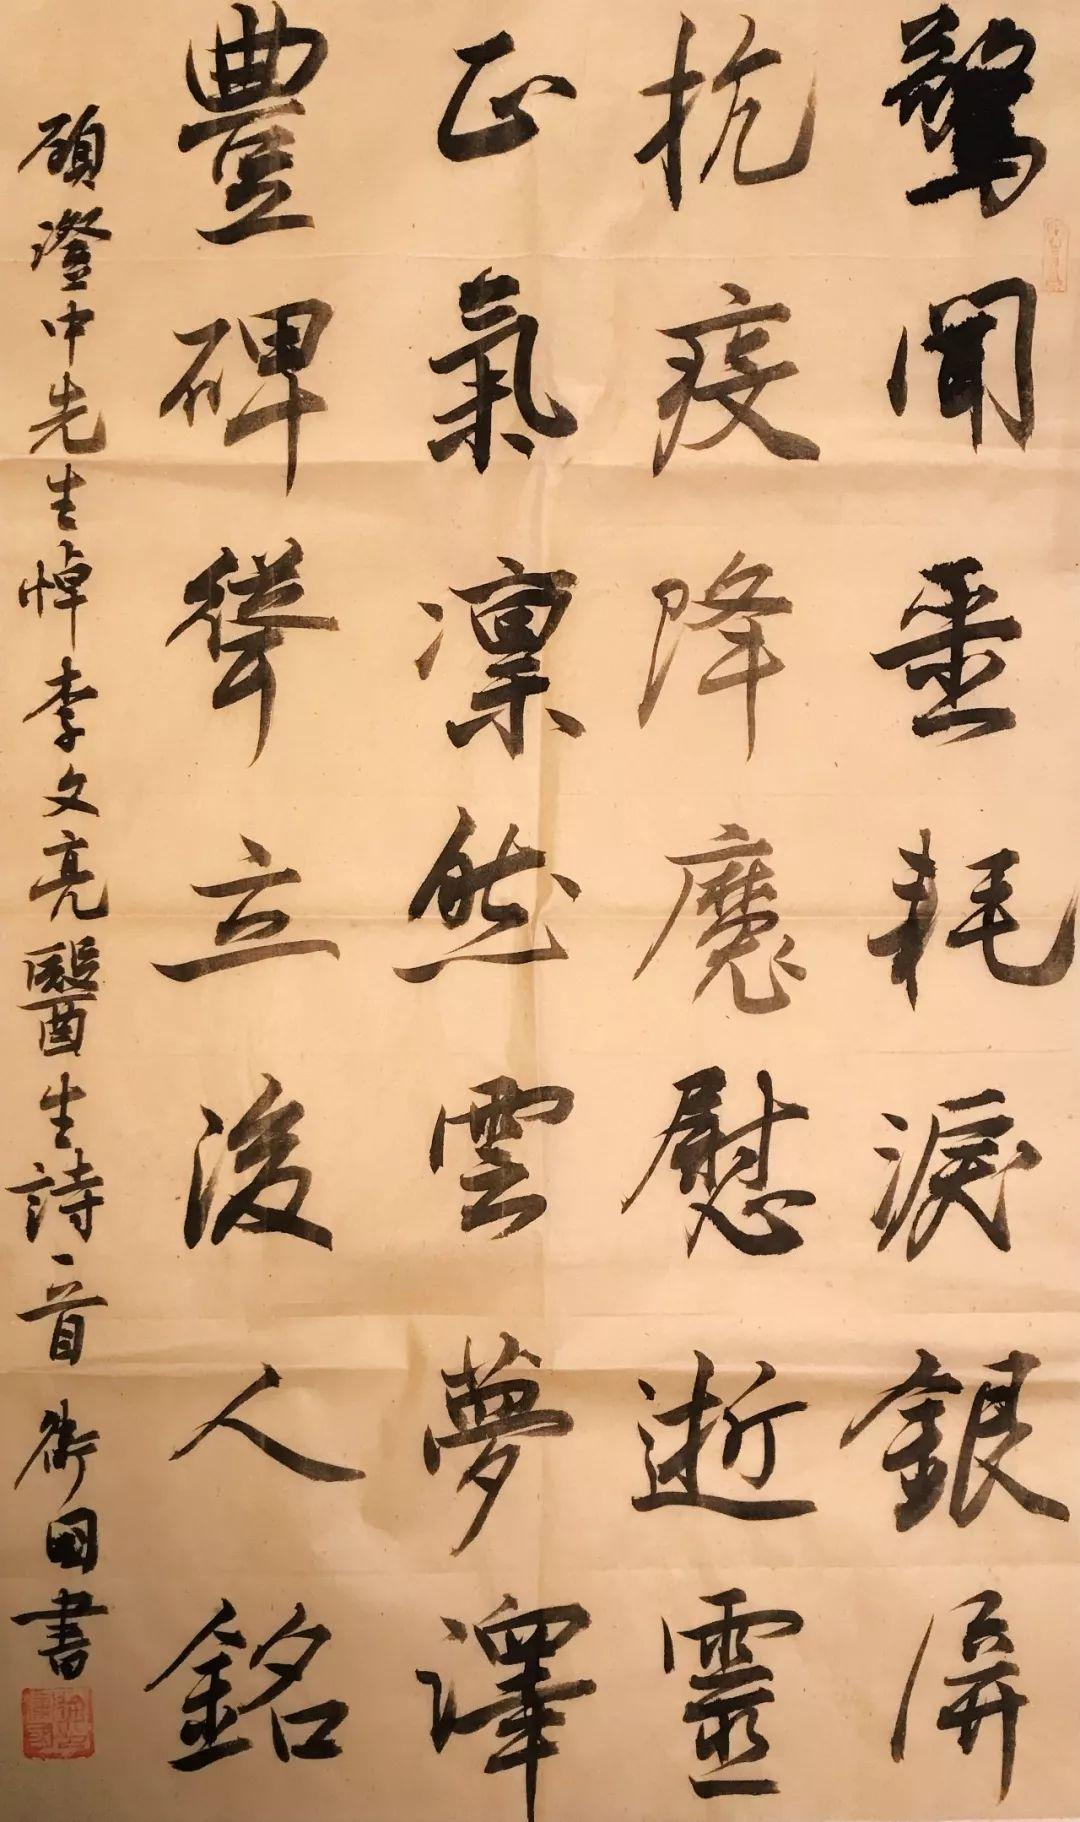 驚聞噩耗淚銀屏
抗疫降魔慰逝靈
正氣凜然雲夢澤
豐碑聳立後人銘
顧澄中先生悼李文亮醫生詩一首 衛國書